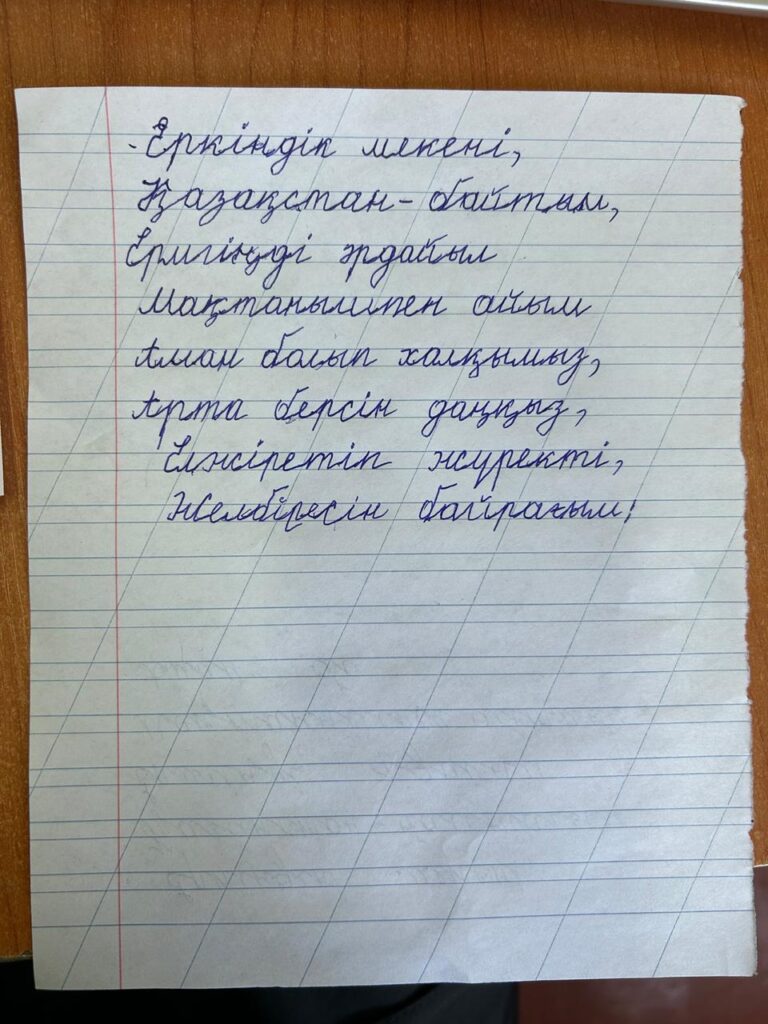 - Еркіндік мекені,
Қазақстан - байтым,
Ермгіңді әрдайыл
Мақтанышпен айым
Аман болып халқымыз,
Арта берсін даңқыз,
Елжіретіп жүректі,
Желбіресін байрағым!